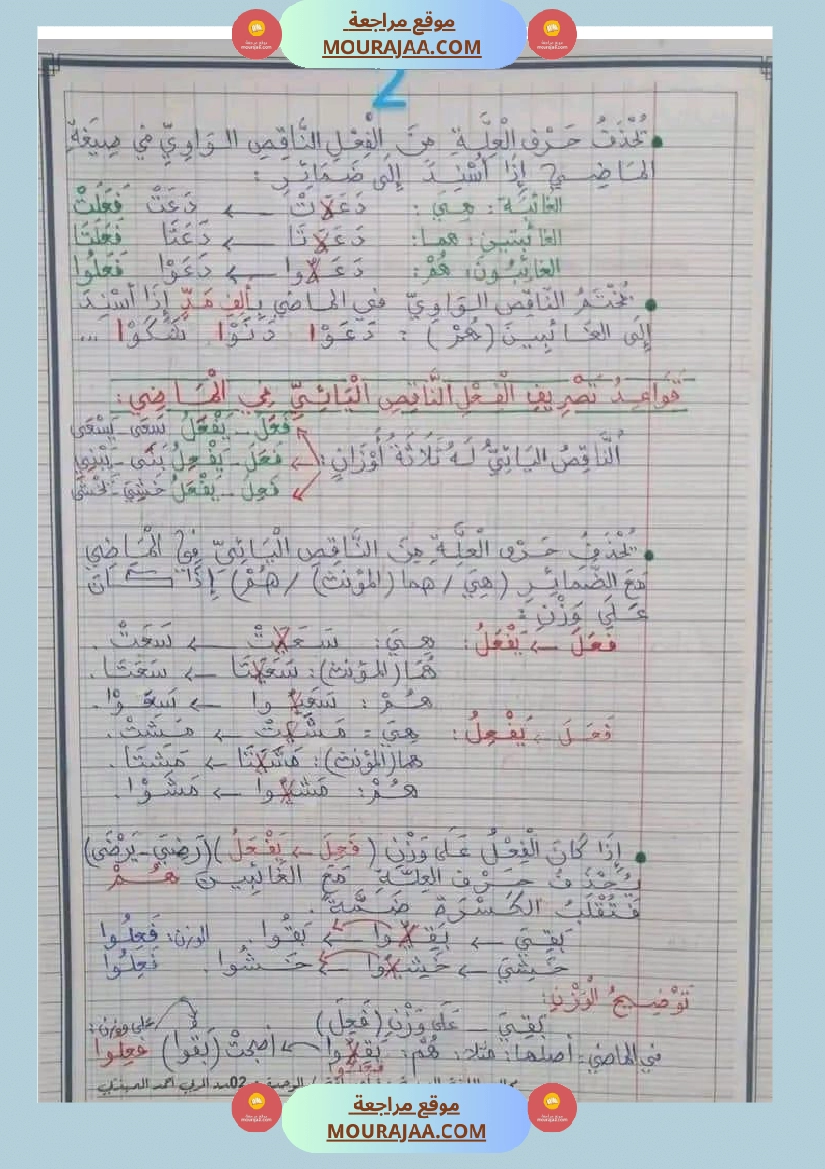 موقع مراجعة
MOURAJAA.COM
2
• تُحْذَفُ حَرْفِ الْعِلَّةِ مِنَ الْفِعْلِ النَّاقِصِ الوَاوِيِّ في صِيغَةِ
المَاضِي إِذَا أُسْنِدَ إِلَى ضَمَائِرِ :
الغائبة : هِيَ : دَعَوَتْ ← دَعَتْ فَعَلَتْ
الغائبتين : هما : دَعَوَتَا ← دَعَتَا فَعَلَتَا
الغائِبُونَ : هُمْ : دَعَوُوا ← دَعَوْا فَعَلُوا
• يُخْتَمُ النَّاقِصُ الوَاوِيّ في الماضي بِأَلِفِ مَدٍّ إِذَا أُسْنِدَ
إِلَى الغَائِبِينَ (هُمْ) : دَعَوْا دَنَوْا شَكَوْا ...
قَوَاعِدُ تَصْرِيفِ الْفِعْلِ النَّاقِصِ الْيَائِيِّ فِي الْمَاضِي :
فَعَلَ - يَفْعَلُ سَعَى - يَسْعَى
النَّاقِصُ اليَائِيُّ لَهُ ثَلَاثَةُ أَوْزَانٍ : فَعَلَ - يَفْعِلُ بَنَى - يَبْنِي
فَعِلَ - يَفْعَلُ خَشِيَ - يَخْشَى
• يُحْذَفُ حَرْفُ الْعِلَّةِ مِنَ النَّاقِصِ الْيَائِيِّ فِي الْمَاضِي
مَعَ الضَّمَائِرِ (هِيَ / هما (المؤنث) / هُمْ) إِذَا كَانَ
عَلَى وَزْنِ :
فَعَلَ ← يَفْعَلُ : هِيَ : سَعَيَتْ ← سَعَتْ .
هُمَا (المؤنث) : سَعَيَتَا ← سَعَتَا .
هُمْ : سَعَيُوا ← سَعَوْا .
فَعَلَ ← يَفْعِلُ : هِيَ : مَشَيَتْ ← مَشَتْ .
هما (المؤنث) : مَشَيَتَا ← مَشَتَا .
هُمْ : مَشَيُوا ← مَشَوْا .
• إِذَا كَانَ الْفِعْلُ عَلَى وَزْنِ (فَعِلَ ← يَفْعَلُ) (رَضِيَ - يَرْضَى)
يُحْذَفُ حَرْفُ العِلَّةِ مَعَ الغَائِبِينَ هُمْ
فَتُقْلَبُ الكَسْرَةُ ضَمَّةً .
بَقِيَ ← بَقِيُوا ← بَقُوا . الوزن : فَعِلُوا
خَشِيَ ← خَشِيُوا ← خَشُوا . فَعِلُوا
تَوْضِيحُ الْوَزْنِ :
بَقِيَ ــ عَلَى وَزْنِ (فَعِلَ)
على وزن :
في الماضي : أصلها : مثلا : هُمْ : بَقِيُوا ← أصبحتْ (بَقُوا) فَعِلُوا
موقع مراجعة
MOURAJAA.COM